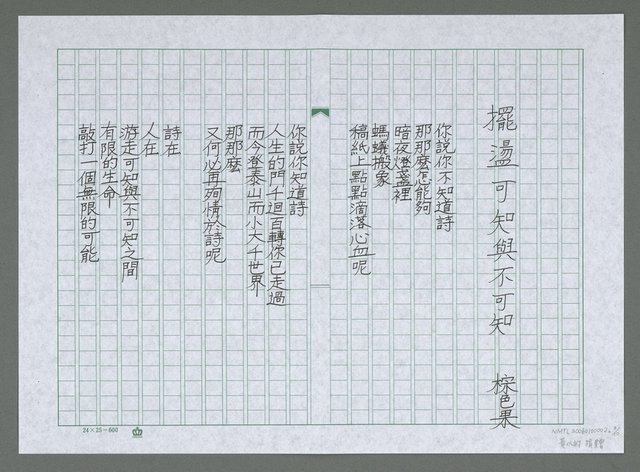 擺盪可知與不可知
棕色果
你說你不知道詩
那那麼怎能夠
暗夜燈盞裡
螞蟻搬象
稿紙上點點滴落心血呢
你說你知道詩
人生的門千迴百轉你已走過
而今登泰山而小大千世界
那那麼
又何必再殉情於詩呢
詩在
人在
游走可知與不可知之間
有限的生命
敲打一個無限的可能
24×25=600